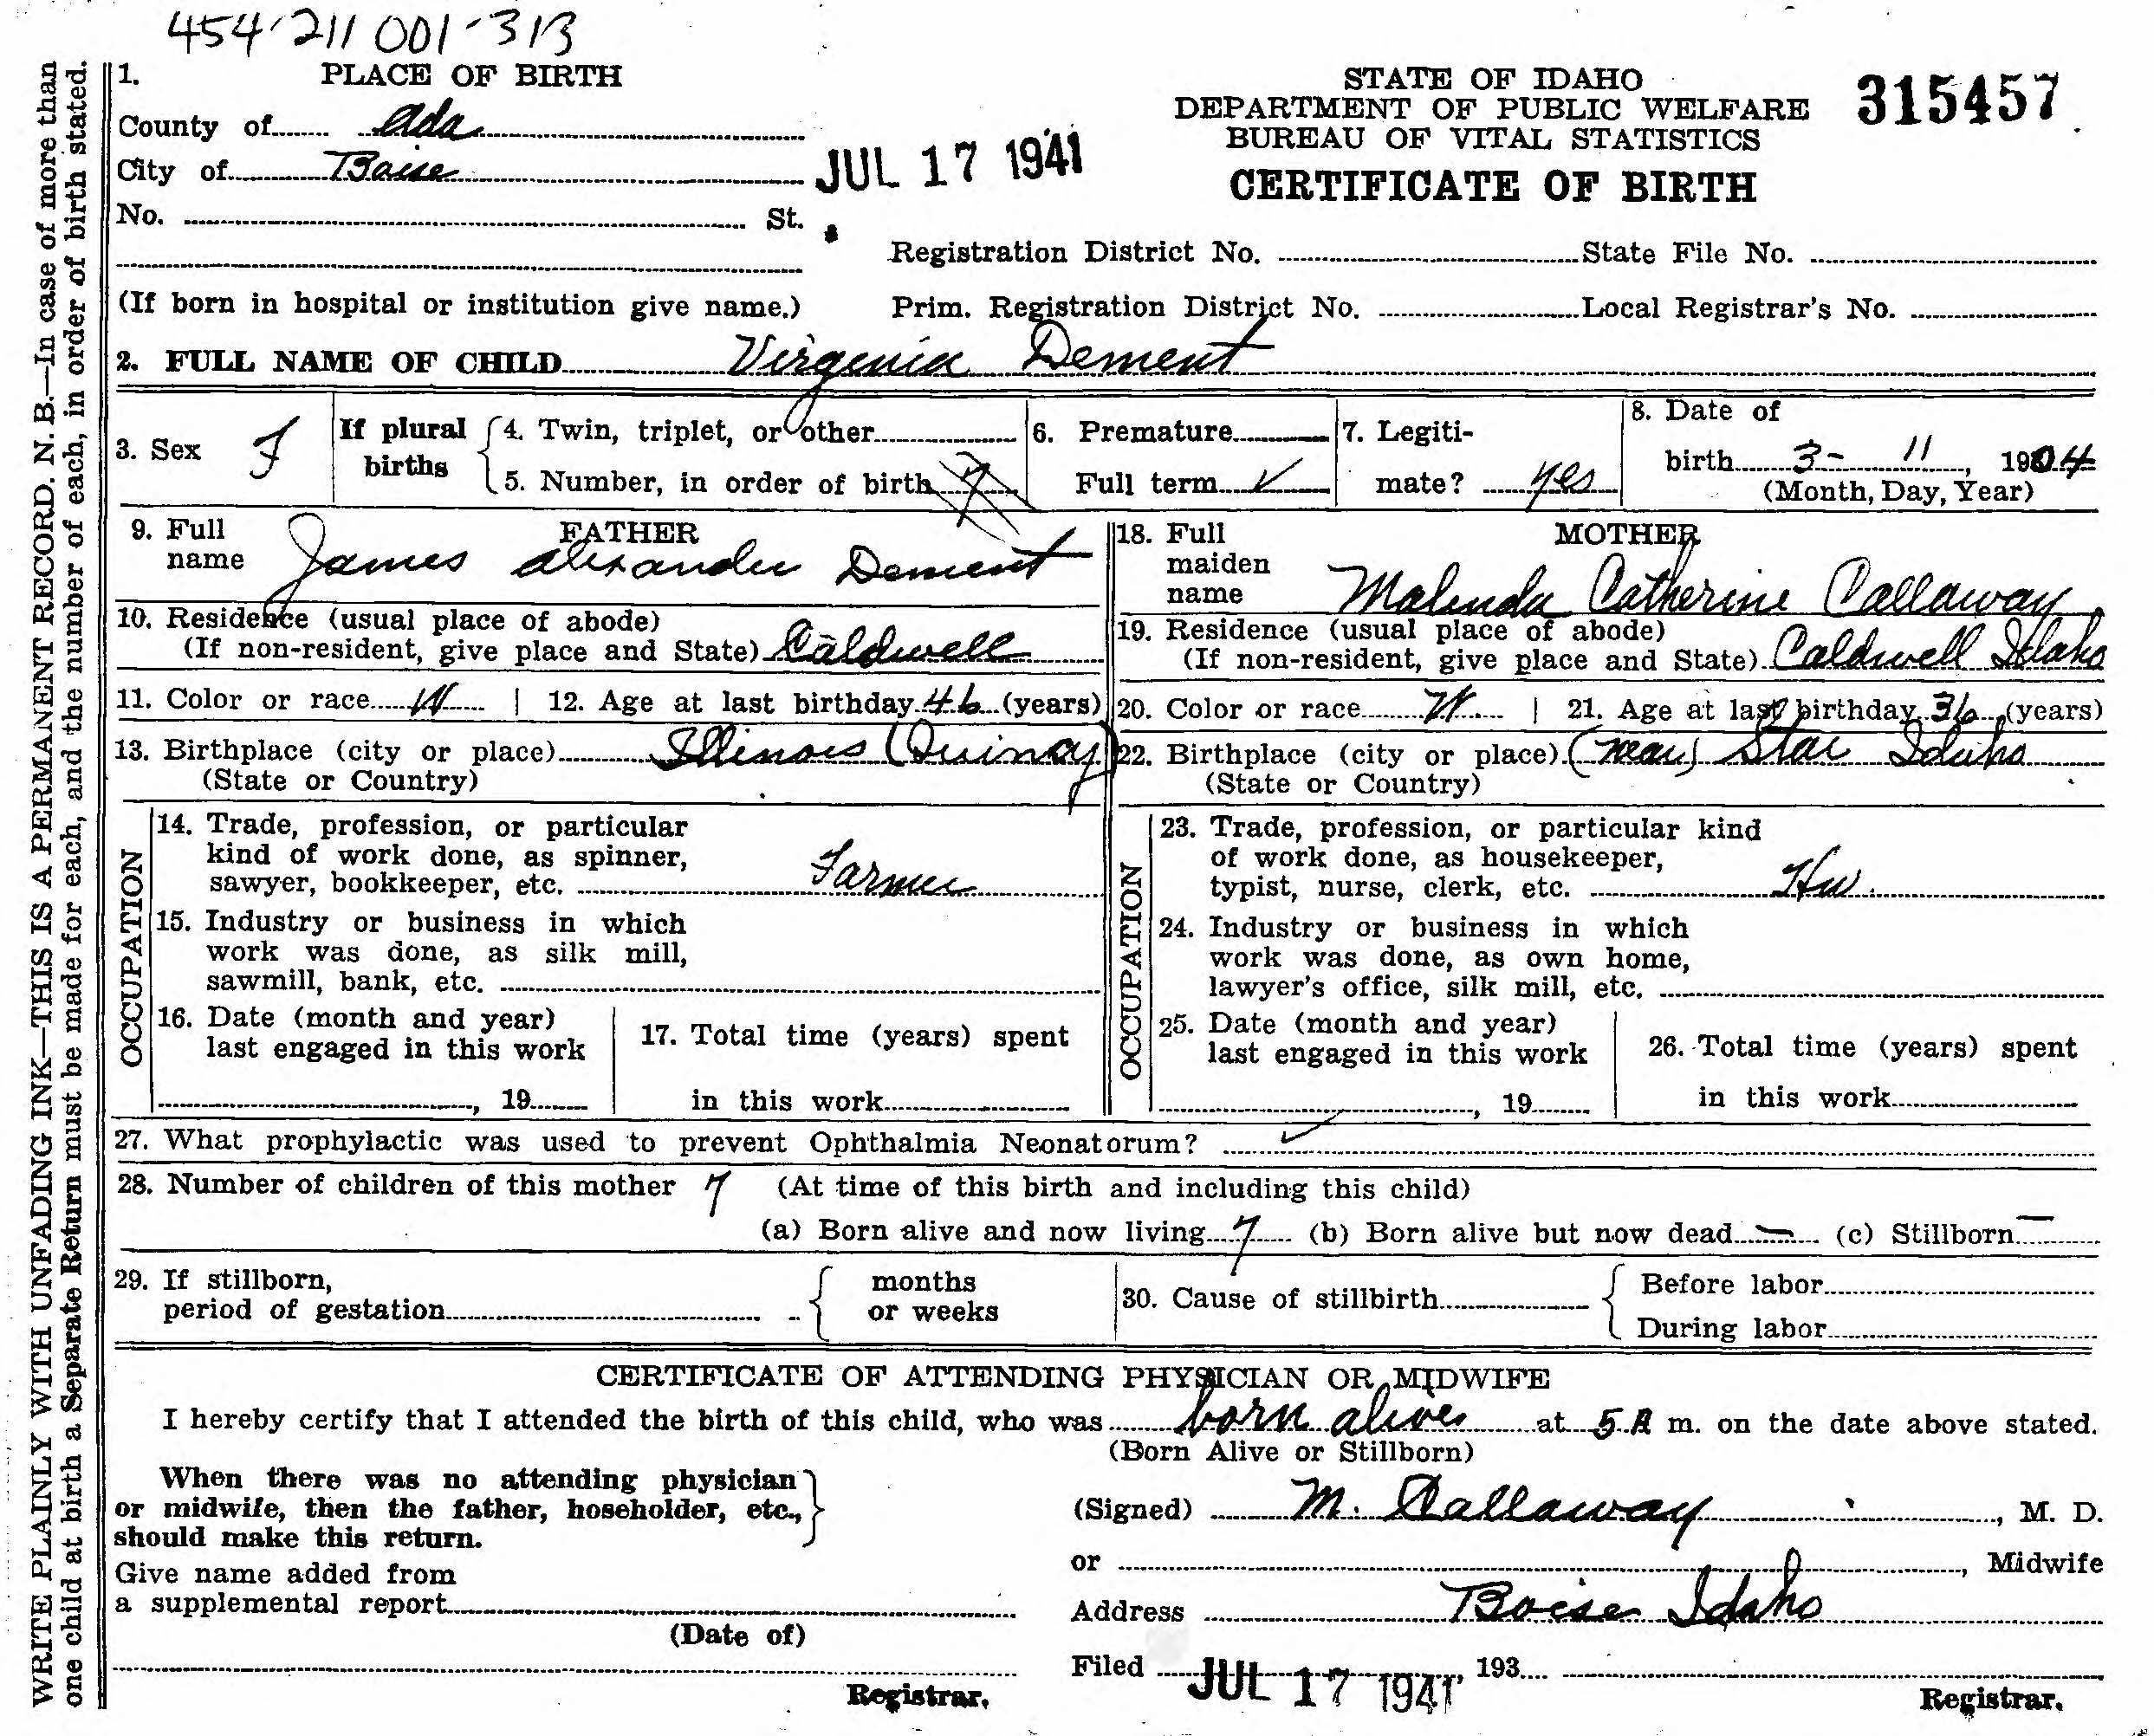 454-211 001-313
1. PLACE OF BIRTH
County of Ada
City of Boise
No. St.
(If born in hospital or institution give name.)
JUL 17 1941
STATE OF IDAHO
DEPARTMENT OF PUBLIC WELFARE
BUREAU OF VITAL STATISTICS
CERTIFICATE OF BIRTH
315457
Registration District No. State File No.
Prim. Registration District No. Local Registrar's No.
2. FULL NAME OF CHILD Virginia Dement
3. Sex F
If plural births
4. Twin, triplet, or other
5. Number, in order of birth 7
6. Premature
Full term ✓
7. Legiti-
mate? yes
8. Date of
birth 3- 11, 1904
(Month, Day, Year)
FATHER
9. Full
name James Alexander Dement
10. Residence (usual place of abode)
(If non-resident, give place and State) Caldwell
11. Color or race W | 12. Age at last birthday 46 (years)
13. Birthplace (city or place) Illinois (Quincy)
(State or Country)
OCCUPATION
14. Trade, profession, or particular
kind of work done, as spinner,
sawyer, bookkeeper, etc. Farmer
15. Industry or business in which
work was done, as silk mill,
sawmill, bank, etc.
16. Date (month and year)
last engaged in this work
, 19
17. Total time (years) spent
in this work
MOTHER
18. Full
maiden
name Malinda Catherine Callaway
19. Residence (usual place of abode)
(If non-resident, give place and State) Caldwell Idaho
20. Color or race W. | 21. Age at last birthday 36 (years)
22. Birthplace (city or place) (near) Star Idaho
(State or Country)
OCCUPATION
23. Trade, profession, or particular kind
of work done, as housekeeper,
typist, nurse, clerk, etc. Hw.
24. Industry or business in which
work was done, as own home,
lawyer's office, silk mill, etc.
25. Date (month and year)
last engaged in this work
, 19
26. Total time (years) spent
in this work
27. What prophylactic was used to prevent Ophthalmia Neonatorum? ✓
28. Number of children of this mother 7 (At time of this birth and including this child)
(a) Born alive and now living 7 (b) Born alive but now dead — (c) Stillborn —
29. If stillborn,
period of gestation { months
or weeks
30. Cause of stillbirth { Before labor
During labor
CERTIFICATE OF ATTENDING PHYSICIAN OR MIDWIFE
I hereby certify that I attended the birth of this child, who was born alive at 5 A m. on the date above stated.
(Born Alive or Stillborn)
When there was no attending physician
or midwife, then the father, hoseholder, etc.,
should make this return.
Give name added from
a supplemental report
(Date of)
Registrar.
(Signed) M. Callaway, M. D.
or , Midwife
Address Boise Idaho
Filed JUL 17 1941, 193
Registrar.
WRITE PLAINLY WITH UNFADING INK—THIS IS A PERMANENT RECORD. N. B.—In case of more than
one child at birth a Separate Return must be made for each, and the number of each, in order of birth stated.